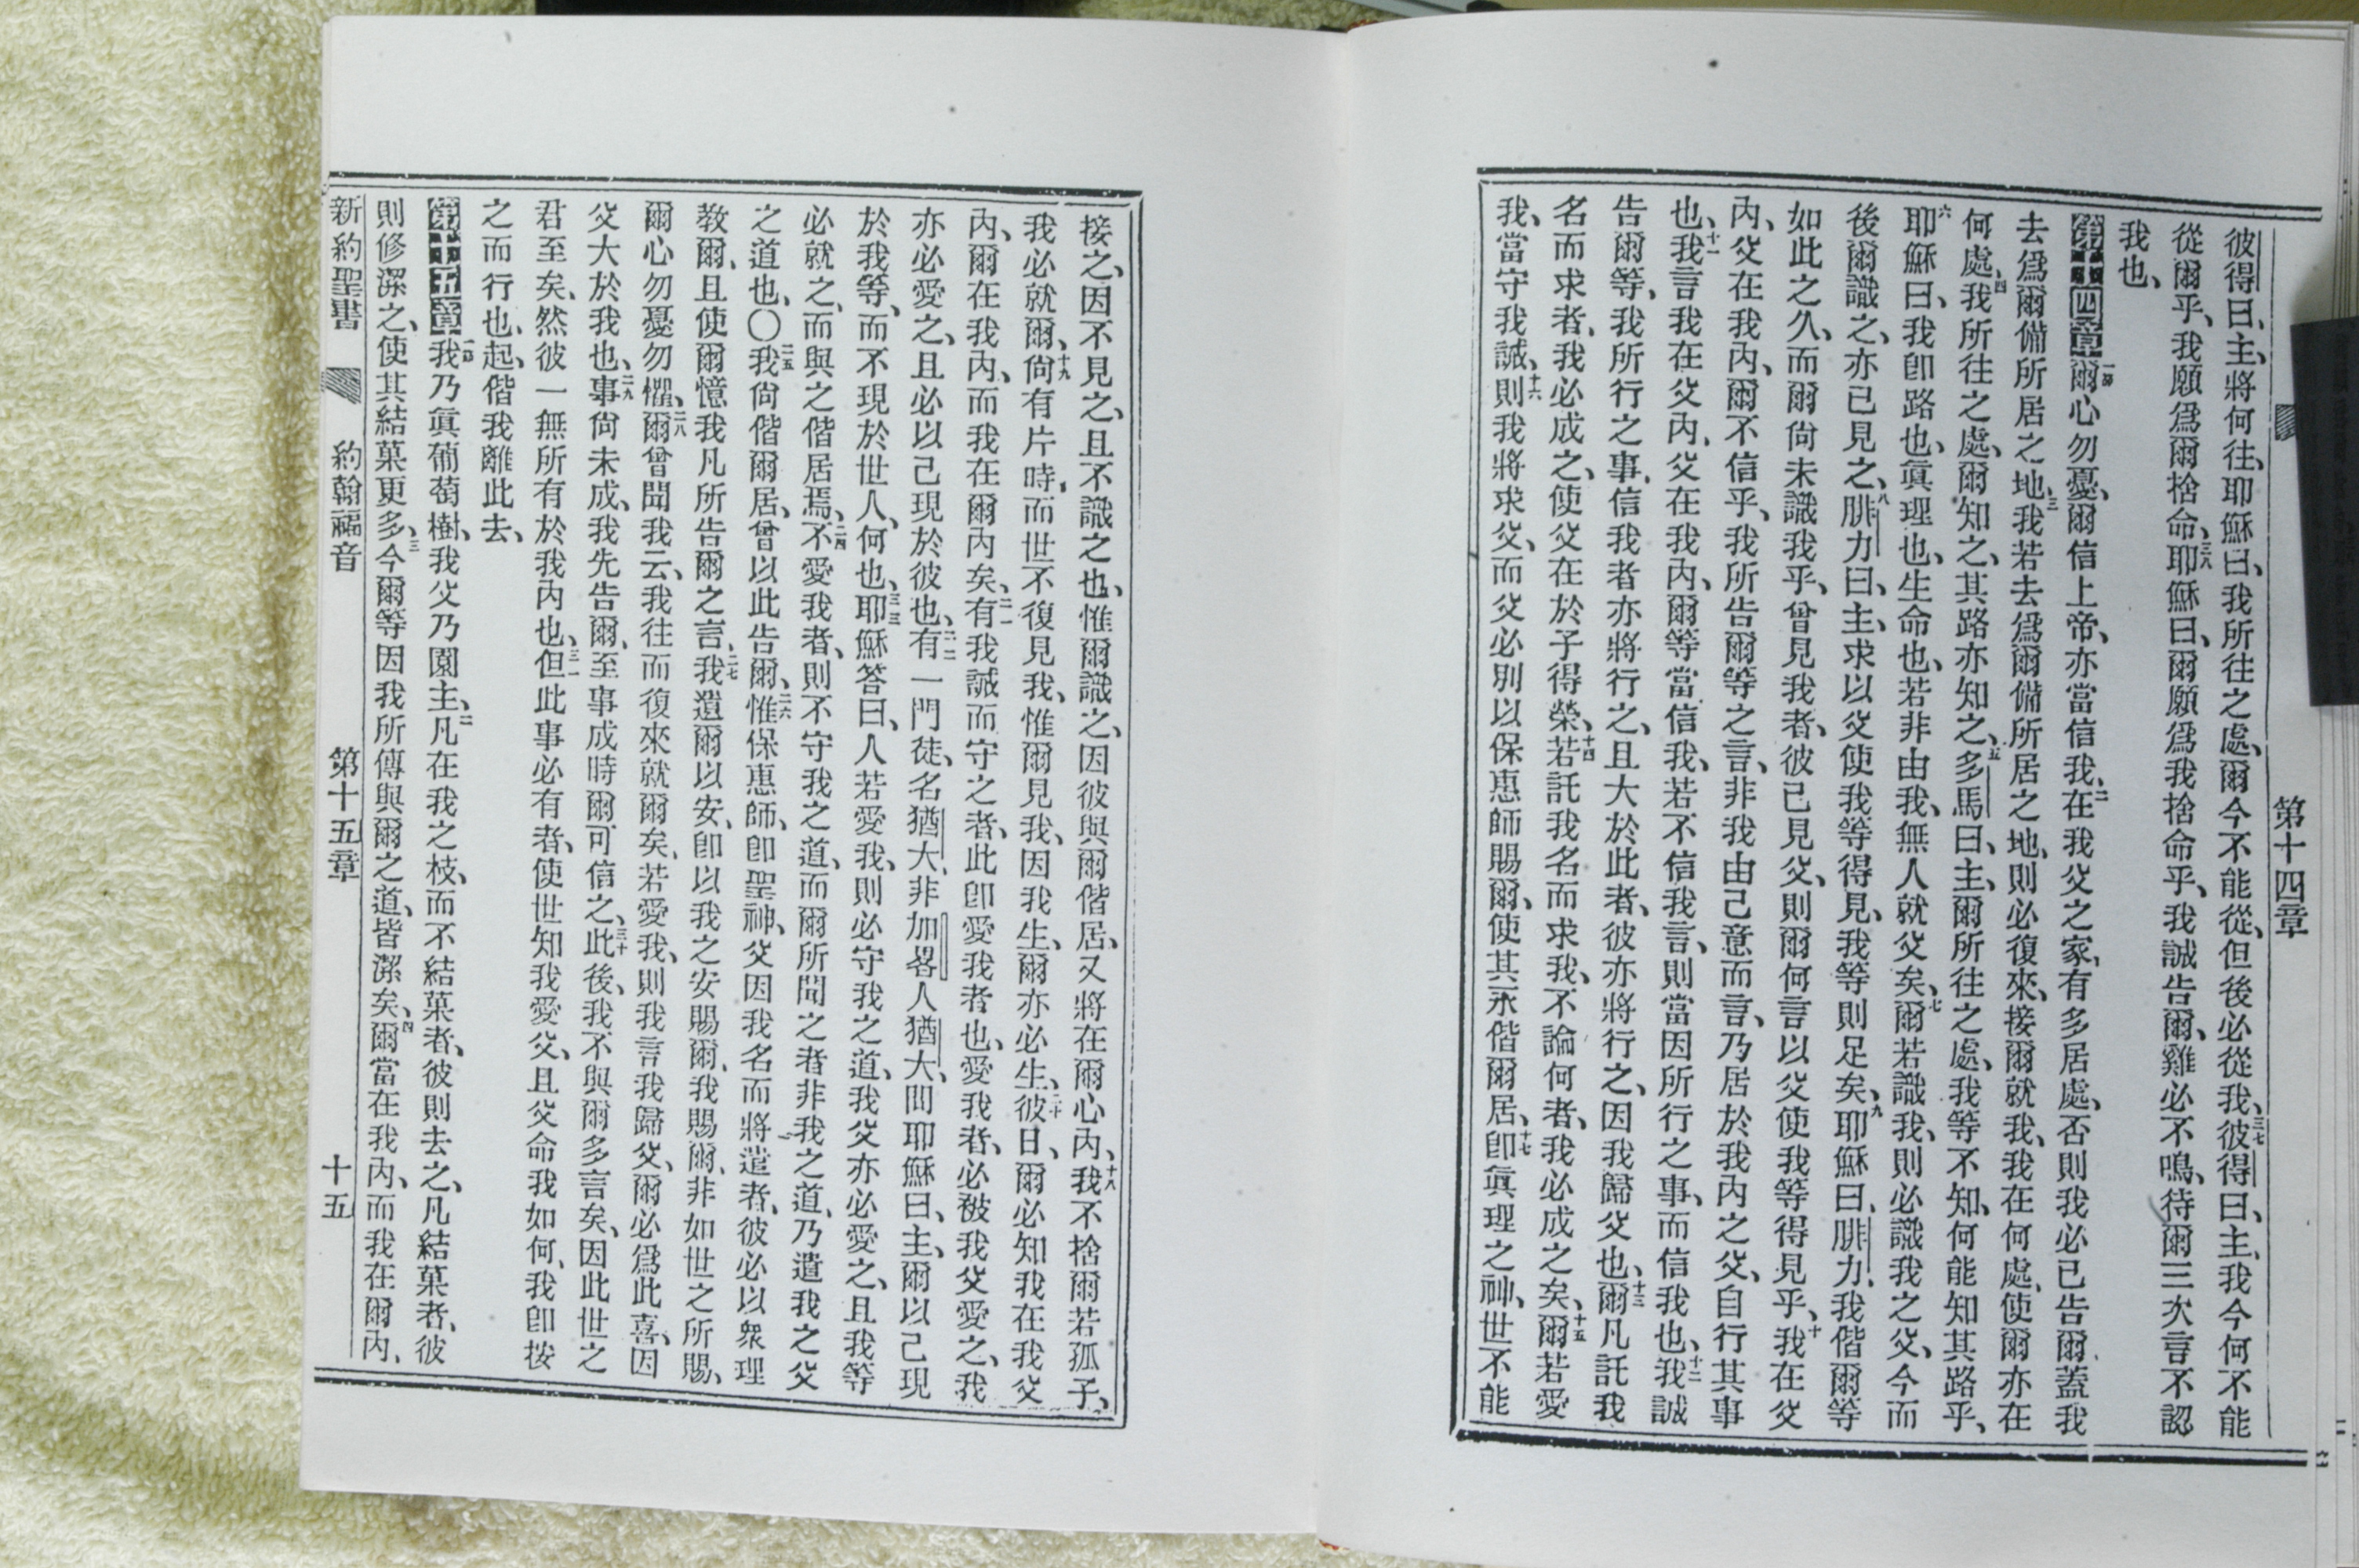 第十四章
彼得曰、主、將何往、耶穌曰、我所往之處、爾今不能從、但後必從我、三七彼得曰、主、我今何不能
從爾乎、我願爲爾捨命、三八耶穌曰、爾願爲我捨命乎、我誠告爾、雞必不鳴、待爾三次言不認
我也、
第十四章一節爾心勿憂、爾信上帝、亦當信我、二在我父之家、有多居處、否則我必已告爾、蓋我
去爲爾備所居之地、三我若去爲爾備所居之地、則必復來、接爾就我、我在何處、使爾亦在
何處、四我所往之處、爾知之、其路亦知之、五多馬曰、主、爾所往之處、我等不知、何能知其路乎、
六耶穌曰、我卽路也、眞理也、生命也、若非由我、無人就父矣、七爾若識我、則必識我之父、今而
後爾識之、亦已見之、八腓力曰、主、求以父使我等得見、我等則足矣、九耶穌曰、腓力、我偕爾等
如此之久、而爾尙未識我乎、曾見我者、彼已見父、則爾何言以父使我等得見乎、十我在父
內、父在我內、爾不信乎、我所告爾等之言、非我由己意而言、乃居於我內之父、自行其事
也、十一我言我在父內、父在我內、爾等當信我、若不信我言、則當因所行之事、而信我也、十二我誠
告爾等、我所行之事、信我者亦將行之、且大於此者、彼亦將行之、因我歸父也、十三爾凡託我
名而求者、我必成之、使父在於子得榮、十四若託我名而求我、不論何者、我必成之矣、十五爾若愛
我、當守我誡、十六則我將求父、而父必別以保惠師賜爾、使其永偕爾居、十七卽眞理之神、世不能
接之、因不見之、且不識之也、惟爾識之、因彼與爾偕居、又將在爾心內、十八我不捨爾若孤子、
我必就爾、十九尙有片時、而世不復見我、惟爾見我、因我生、爾亦必生、二十彼日、爾必知我在我父
內、爾在我內、而我在爾內矣、二一有我誡而守之者、此卽愛我者也、愛我者、必被我父愛之、我
亦必愛之、且必以己現於彼也、二二有一門徒、名猶大、非加畧人猶大、問耶穌曰、主、爾以己現
於我等、而不現於世人、何也、二三耶穌答曰、人若愛我、則必守我之道、我父亦必愛之、且我等
必就之、而與之偕居焉、二四不愛我者、則不守我之道、而爾所聞之者非我之道、乃遣我之父
之道也、〇二五我尙偕爾居、曾以此告爾、二六惟保惠師、卽聖神、父因我名而將遣者、彼必以衆理
敎爾、且使爾憶我凡所告爾之言、二七我遺爾以安、卽以我之安賜爾、我賜爾、非如世之所賜、
爾心勿憂勿懼、二八爾曾聞我云、我往而復來就爾矣、若愛我、則我言我歸父、爾必爲此喜、因
父大於我也、二九事尙未成、我先告爾、至事成時爾可信之、三十此後、我不與爾多言矣、因此世之
君至矣、然彼一無所有於我內也、三一但此事必有者、使世知我愛父、且父命我如何、我卽按
之而行也、起、偕我離此去、
第十五章一節我乃眞葡萄樹、我父乃園主、二凡在我之枝、而不結菓者、彼則去之、凡結菓者、彼
則修潔之、使其結菓更多、三今爾等因我所傳與爾之道、皆潔矣、四爾當在我內、而我在爾內、
新約聖書 約翰福音 第十五章 十五